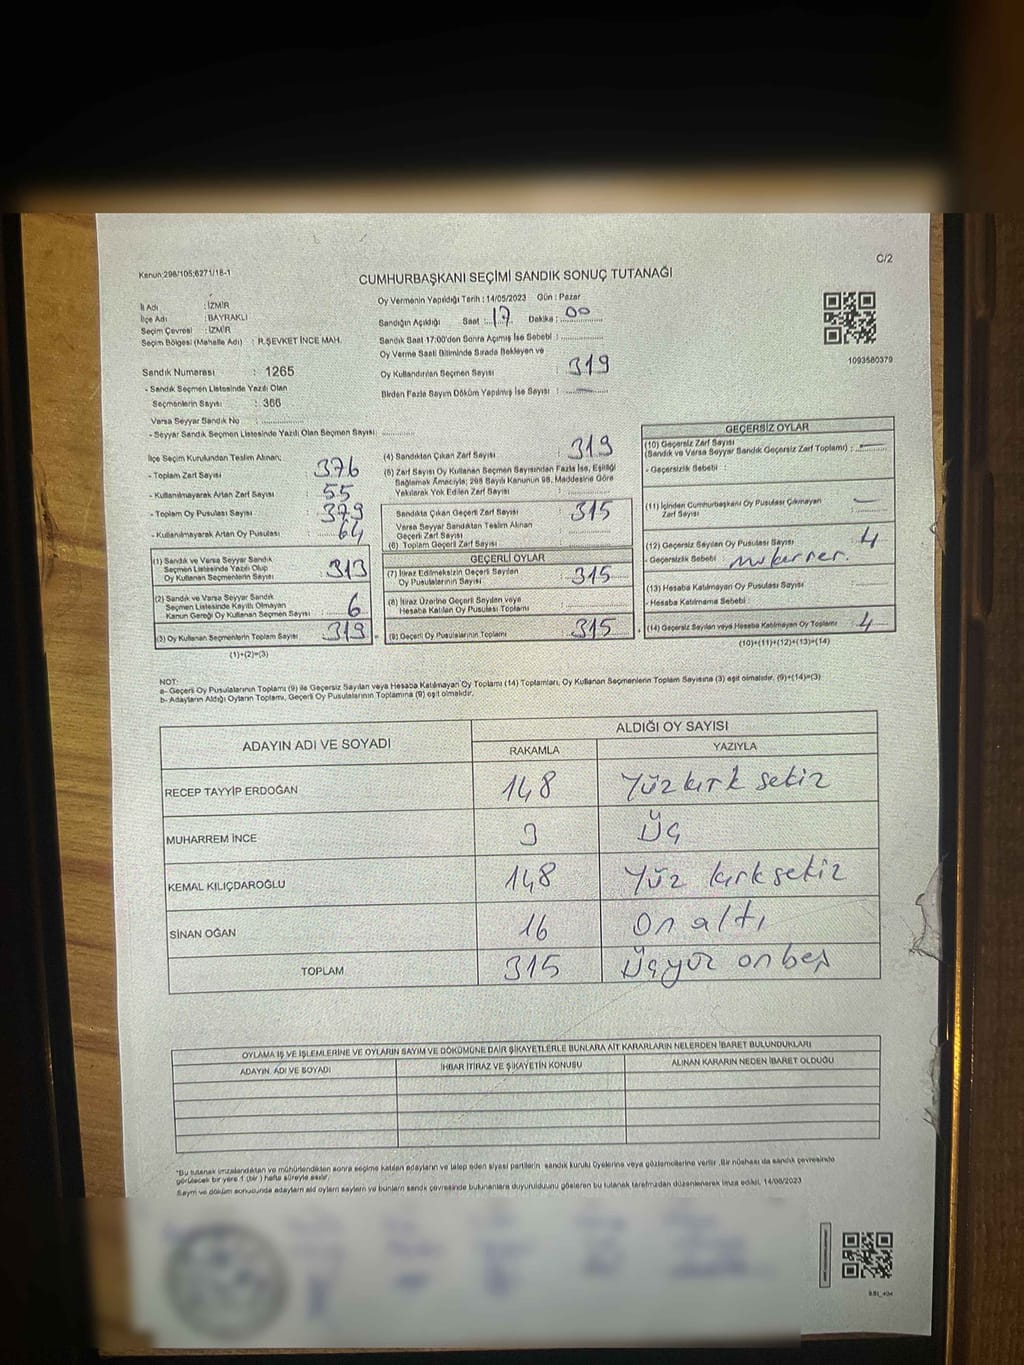 C/2
Kanun:298/105;6271/18-1
CUMHURBAŞKANI SEÇİMİ SANDIK SONUÇ TUTANAĞI
İl Adı : İZMİR
İlçe Adı : BAYRAKLI
Seçim Çevresi : İZMİR
Seçim Bölgesi (Mahalle Adı) : R.ŞEVKET İNCE MAH.
Oy Vermenin Yapıldığı Tarih : 14/05/2023 Gün : Pazar
Sandığın Açıldığı Saat : 17 Dakika : 00
Sandık Saat 17:00'den Sonra Açımış İse Sebebi :
Oy Verme Saati Bitiminde Sırada Bekleyen ve
Oy Kullandırılan Seçmen Sayısı : 319
Birden Fazla Sayım Döküm Yapılmış İse Sayısı : —
1093580379
Sandık Numarası : 1265
- Sandık Seçmen Listesinde Yazılı Olan
Seçmenlerin Sayısı : 366
Varsa Seyyar Sandık No :
- Seyyar Sandık Seçmen Listesinde Yazılı Olan Seçmen Sayısı:
İlçe Seçim Kurulundan Teslim Alınan;
- Toplam Zarf Sayısı : 376
- Kullanılmayarak Artan Zarf Sayısı : 55
- Toplam Oy Pusulası Sayısı : 379
- Kullanılmayarak Artan Oy Pusulası : 64
(1) Sandık ve Varsa Seyyar Sandık
Seçmen Listesinde Yazılı Olup
Oy Kullanan Seçmenlerin Sayısı : 313
(2) Sandık ve Varsa Seyyar Sandık
Seçmen Listesinde Kayıtlı Olmayan
Kanun Gereği Oy Kullanan Seçmen Sayısı : 6
(3) Oy Kullanan Seçmenlerin Toplam Sayısı : 319
(1)+(2)=(3)
(4) Sandıktan Çıkan Zarf Sayısı : 319
(5) Zarf Sayısı Oy Kullanan Seçmen Sayısından Fazla İse, Eşitliği
Sağlamak Amacıyla; 298 Sayılı Kanunun 98. Maddesine Göre
Yakılarak Yok Edilen Zarf Sayısı :
Sandıkta Çıkan Geçerli Zarf Sayısı : 315
Varsa Seyyar Sandıktan Teslim Alınan
Geçerli Zarf Sayısı :
(6) Toplam Geçerli Zarf Sayısı :
GEÇERLİ OYLAR
(7) İtiraz Edilmeksizin Geçerli Sayılan
Oy Pusulalarının Sayısı : 315
(8) İtiraz Üzerine Geçerli Sayılan veya
Hesaba Katılan Oy Pusulası Toplamı :
(9) Geçerli Oy Pusulalarının Toplamı : 315
GEÇERSİZ OYLAR
(10) Geçersiz Zarf Sayısı
(Sandık ve Varsa Seyyar Sandık Geçersiz Zarf Toplamı) : —
- Geçersizlik Sebebi :
(11) İçinden Cumhurbaşkanı Oy Pusulası Çıkmayan
Zarf Sayısı : —
(12) Geçersiz Sayılan Oy Pusulası Sayısı : 4
- Geçersizlik Sebebi : mükerrer.
(13) Hesaba Katılmayan Oy Pusulası Sayısı
- Hesaba Katılmama Sebebi :
(14) Geçersiz Sayılan veya Hesaba Katılmayan Oy Toplamı : 4
(10)+(11)+(12)+(13)=(14)
NOT:
a- Geçerli Oy Pusulalarının Toplamı (9) ile Geçersiz Sayılan veya Hesaba Katılmayan Oy Toplamı (14) Toplamları, Oy Kullanan Seçmenlerin Toplam Sayısına (3) eşit olmalıdır. (9)+(14)=(3)
b- Adayların Aldığı Oyların Toplamı, Geçerli Oy Pusulalarının Toplamına (9) eşit olmalıdır.
ADAYIN ADI VE SOYADI ALDIĞI OY SAYISI
RAKAMLA YAZIYLA
RECEP TAYYİP ERDOĞAN 148 Yüz kırk sekiz
MUHARREM İNCE 3 Üç
KEMAL KILIÇDAROĞLU 148 Yüz kırk sekiz
SİNAN OĞAN 16 On altı
TOPLAM 315 Üçyüz onbeş
OYLAMA İŞ VE İŞLEMLERİNE VE OYLARIN SAYIM VE DÖKÜMÜNE DAİR ŞİKAYETLERLE BUNLARA AİT KARARLARIN NELERDEN İBARET BULUNDUKLARI
ADAYIN ADI VE SOYADI İHBAR İTİRAZ VE ŞİKAYETİN KONUSU ALINAN KARARIN NEDEN İBARET OLDUĞU
"Bu tutanak imzalandıktan ve mühürlendikten sonra seçime katılan adayların ve talep eden siyasi partilerin sandık kurulu üyelerine veya gözlemcilerine verilir .Bir nüshası da sandık çevresinde
görülecek bir yere 1 (bir ) hafta süreyle asılır.
Sayım ve döküm sonucunda adayların aldığı oyların sayıların ve bunların sandık çevresinde bulunanlara duyurulduğunu gösteren bu tutanak tarafımızdan düzenlenerek imza edildi. 14/05/2023